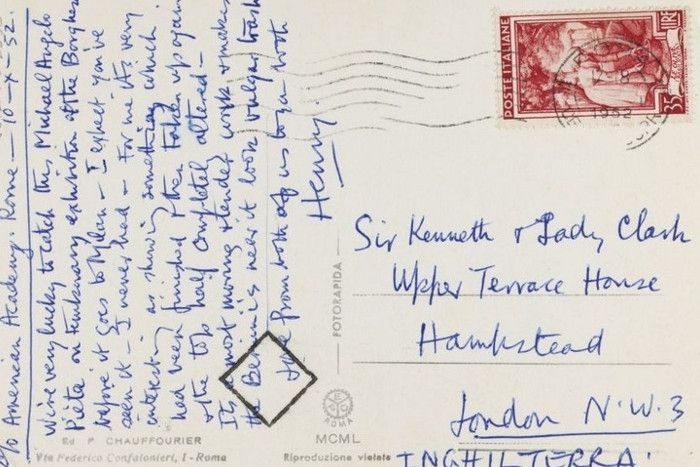 c/o American Academy. Rome — 10-X-52.
We're very lucky to catch this Michael Angelo
Pièta on temporary exhibition at the Borghese
before it goes to Milan — I expect you've
seen it — I never had — For me it's very
interesting as showing something which
had been finished & then taken up again
& the top half completely altered —
It's a most moving & tender work & makes
the Bernini's near it look vulgar trash
Love from both of us to you both
Henry.
POSTE ITALIANE
LIRE 35
1952
Sir Kenneth & Lady Clark
Upper Terrace House
Hampstead
London N.W.3
INGHILTERRA
FOTORAPIDA
ROMA
Ed. P. CHAUFFOURIER
Via Federico Confalonieri, 1 - Roma
MCML
Riproduzione vietata